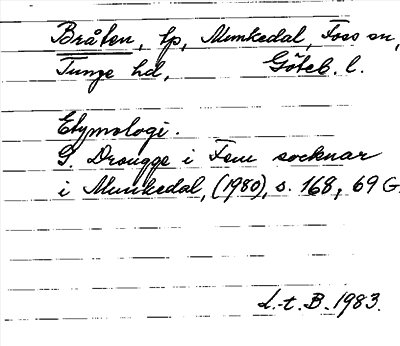 Bråten, lp, Munkedal, Foss sn,
Tunge hd, Göteb. l.
Etymologi.
G. Drougge i Fem socknar
i Munkedal, (1980), s. 168, 69 G.
L.-t. B. 1983.